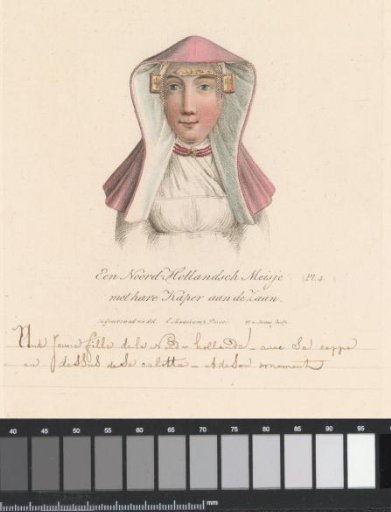 Een Noord-Hollandsch Meisje Pl. 4.
met hare Kaper aan de Zaan.
E. Maaskamp Direx.
Une Jeune fille de la N.B - hollande - avec sa cappe
en dessus de sa calotte - et de son ornement
40 45 50 55 60 65 70 75 80 85 90 95
mm